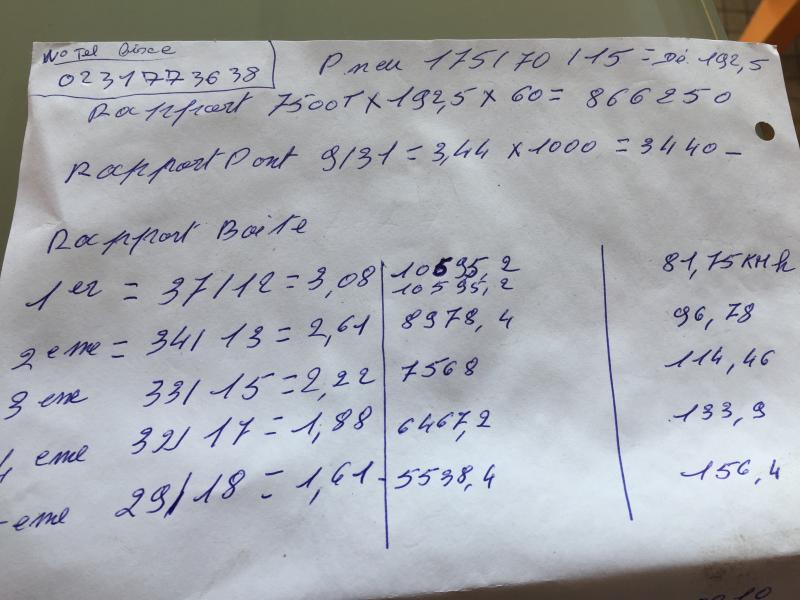 No Tel Bisce
0231773638
Pneu 175/70/15 = Dé. 192,5
Rapport 7500T x 192,5 x 60 = 866250
Rapport Pont 9/31 = 3,44 x 1000 = 3440 -
Rapport Boite
1er = 37/12 = 3,08 10595,2 81,75 KMh
10595,2
2eme = 34/13 = 2,61 8978,4 96,78
3eme 33/15 = 2,22 7568 114,46
4 eme 32/17 = 1,88 6467,2 133,9
eme 29/18 = 1,61 - 5538,4 156,4